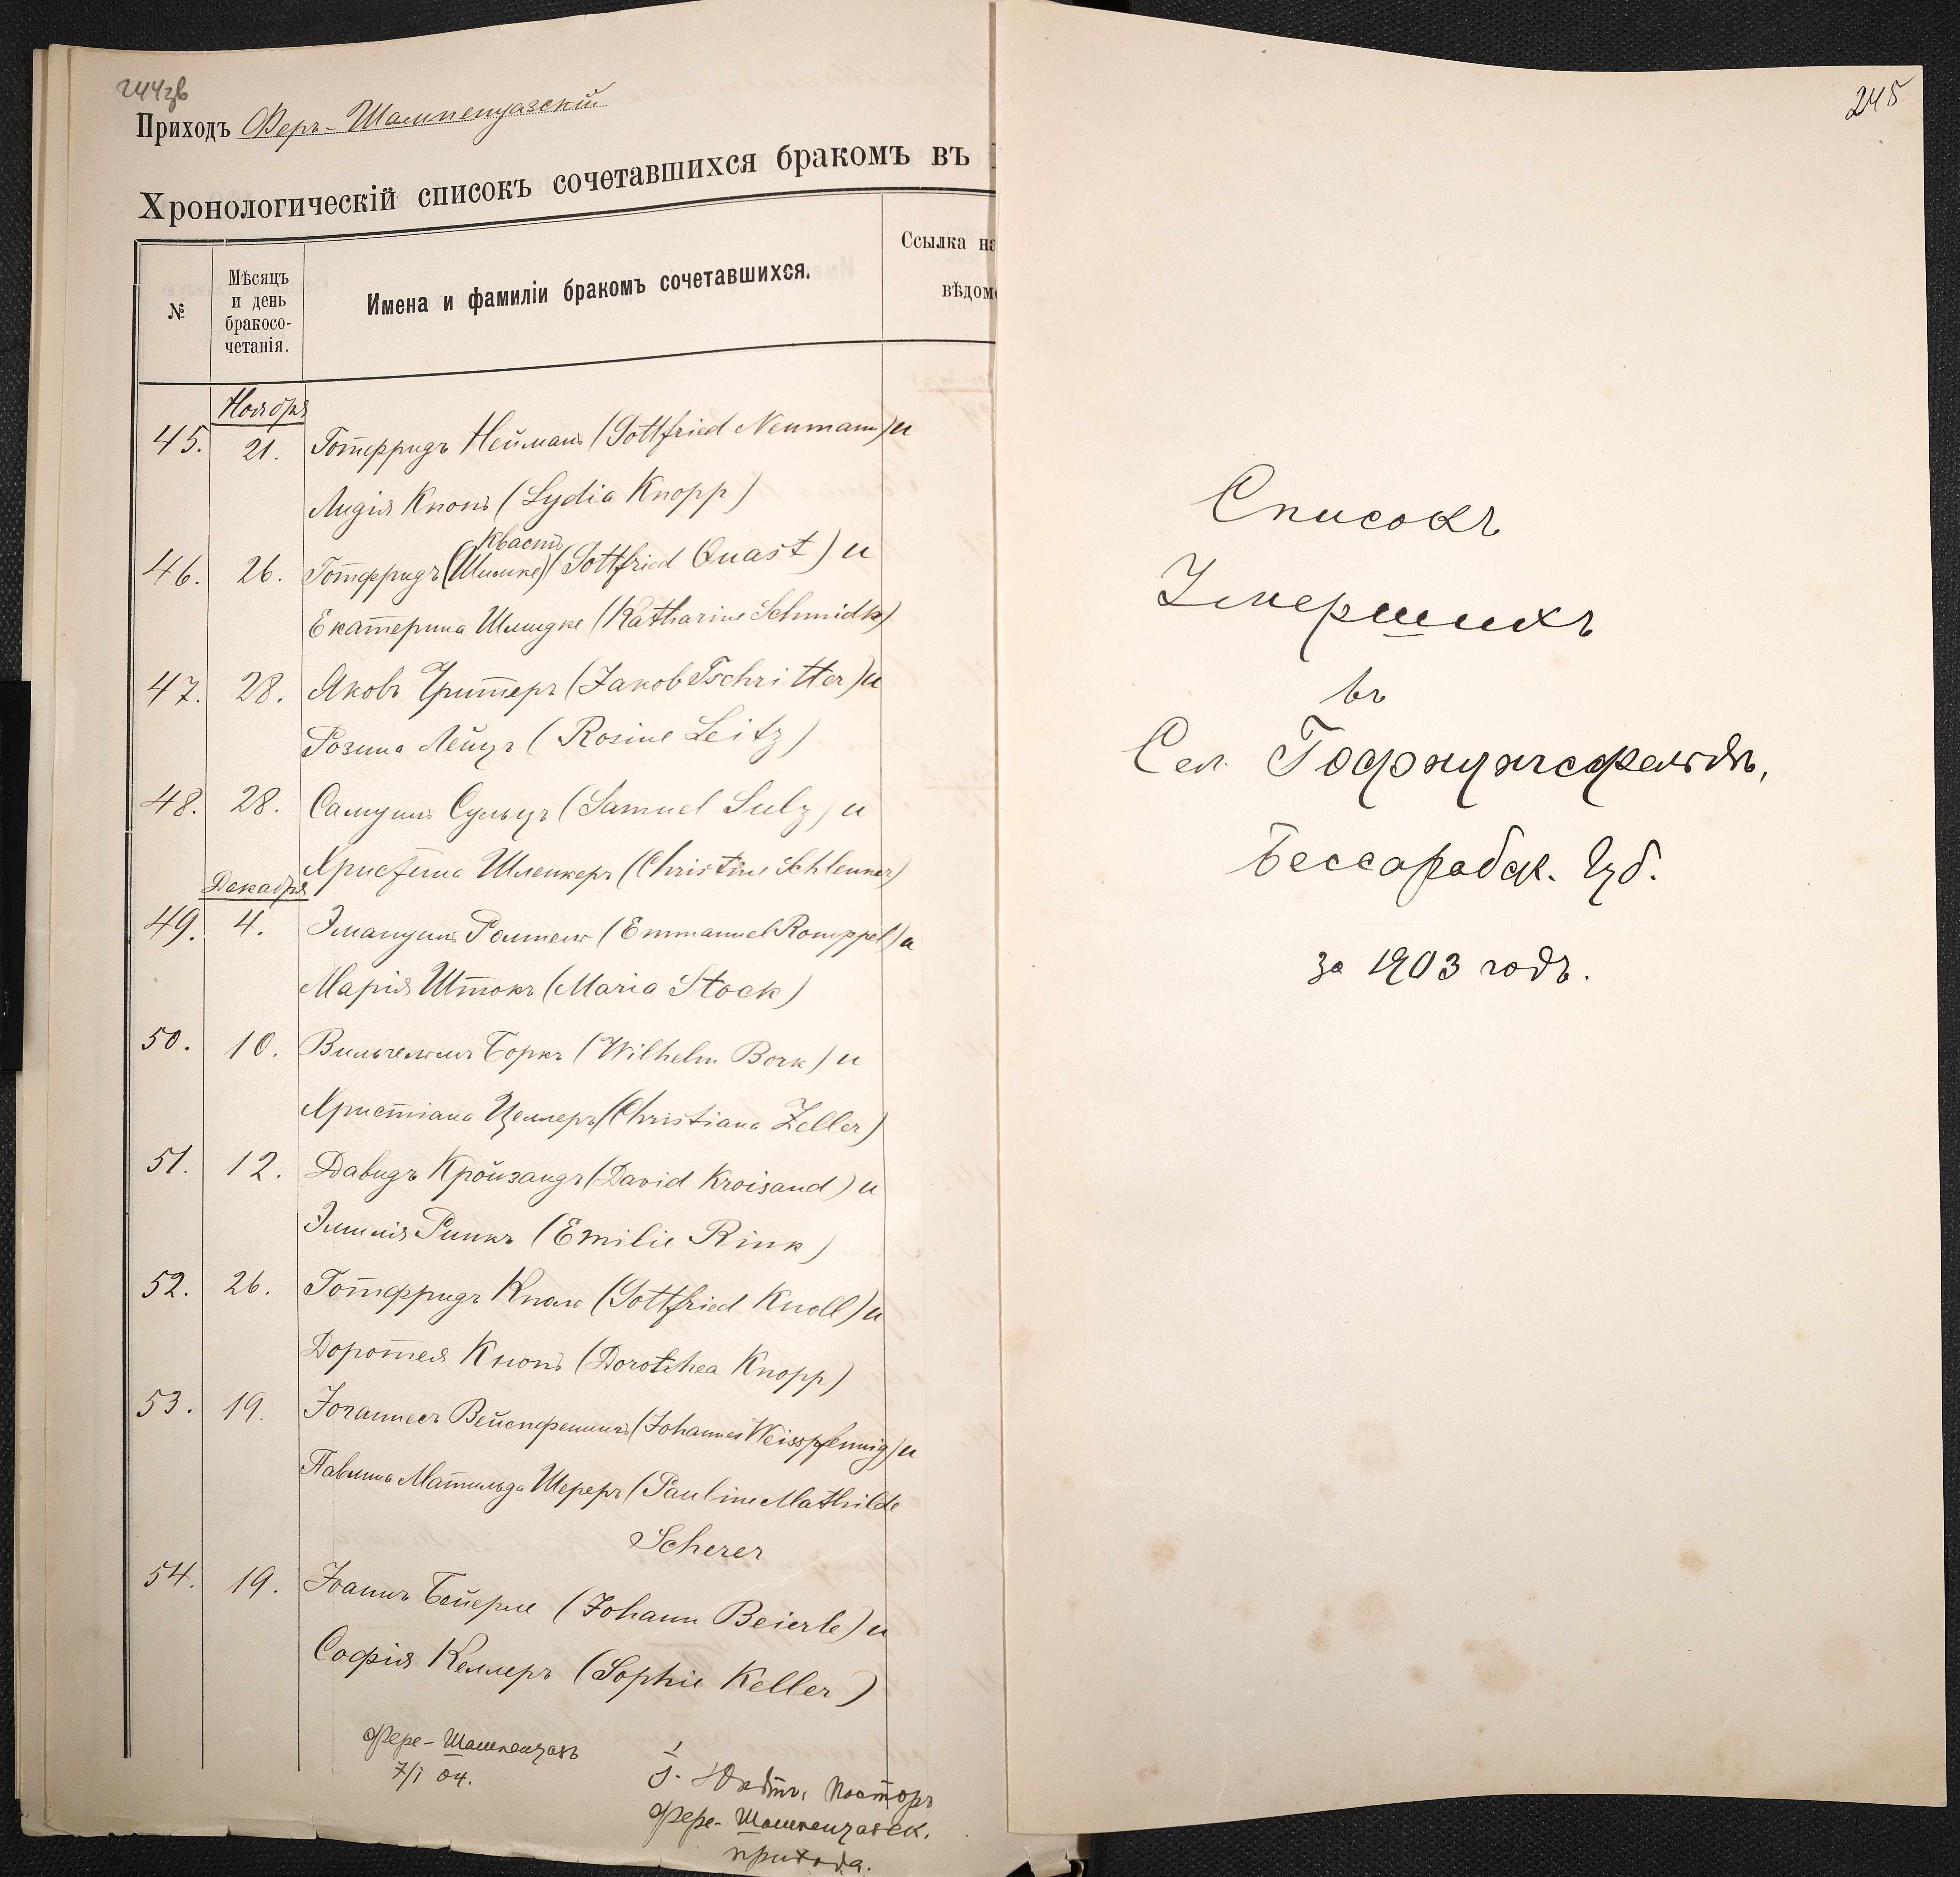 244зв
Приходъ Феръ-Шампенуазскій
Хронологическій списокъ сочетавшихся бракомъ въ
№
Мѣсяцъ
и день
бракосо-
четанія.
Имена и фамиліи бракомъ сочетавшихся.
Ссылка на
вѣдом
Ноября
45. 21. Готфридъ Нейманъ (Gottfried Neumann) и
Лидія Кнопъ (Lydia Knopp)
Квастъ
46. 26. Готфридъ (Шмике) (Gottfried Quast) и
Екатерина Шмидке (Katharine Schmidke)
47. 28. Яковъ Чриттеръ (Jakob Tschritter) и
Розина Лейцъ (Rosine Leitz)
48. 28. Самуилъ Сульцъ (Samuel Sulz) и
Христина Шленкеръ (Christine Schlenker)
Декабря
49. 4. Эмануилъ Ромпель (Emmanuel Romppel) и
Марія Штокъ (Maria Stock)
50. 10. Вильгельмъ Боркъ (Wilhelm Bork) и
Христіана Целлеръ (Christiana Zeller)
51. 12. Давидъ Кройзандъ (David Kroisand) и
Эмилія Ринкъ (Emilie Rink)
52. 26. Готфридъ Кноль (Gottfried Knoll) и
Доротея Кнопъ (Dorothea Knopp)
53. 19. Іоганнесъ Вейспфеннигъ (Johannes Weisspfennig) и
Павлина Матильда Шереръ (Pauline Mathilde
Scherer
54. 19. Іоаннъ Бейерле (Johann Beierle) и
Софія Келлеръ (Sophie Keller)
Фере-Шампенуазъ
7/I 04.
Пасторъ
Фере-Шампенуазск.
прихода.
245
Списокъ
Умершихъ
въ
Сел. Гофнунгсфельдъ,
Бессарабск. Губ.
за 1903 годъ.